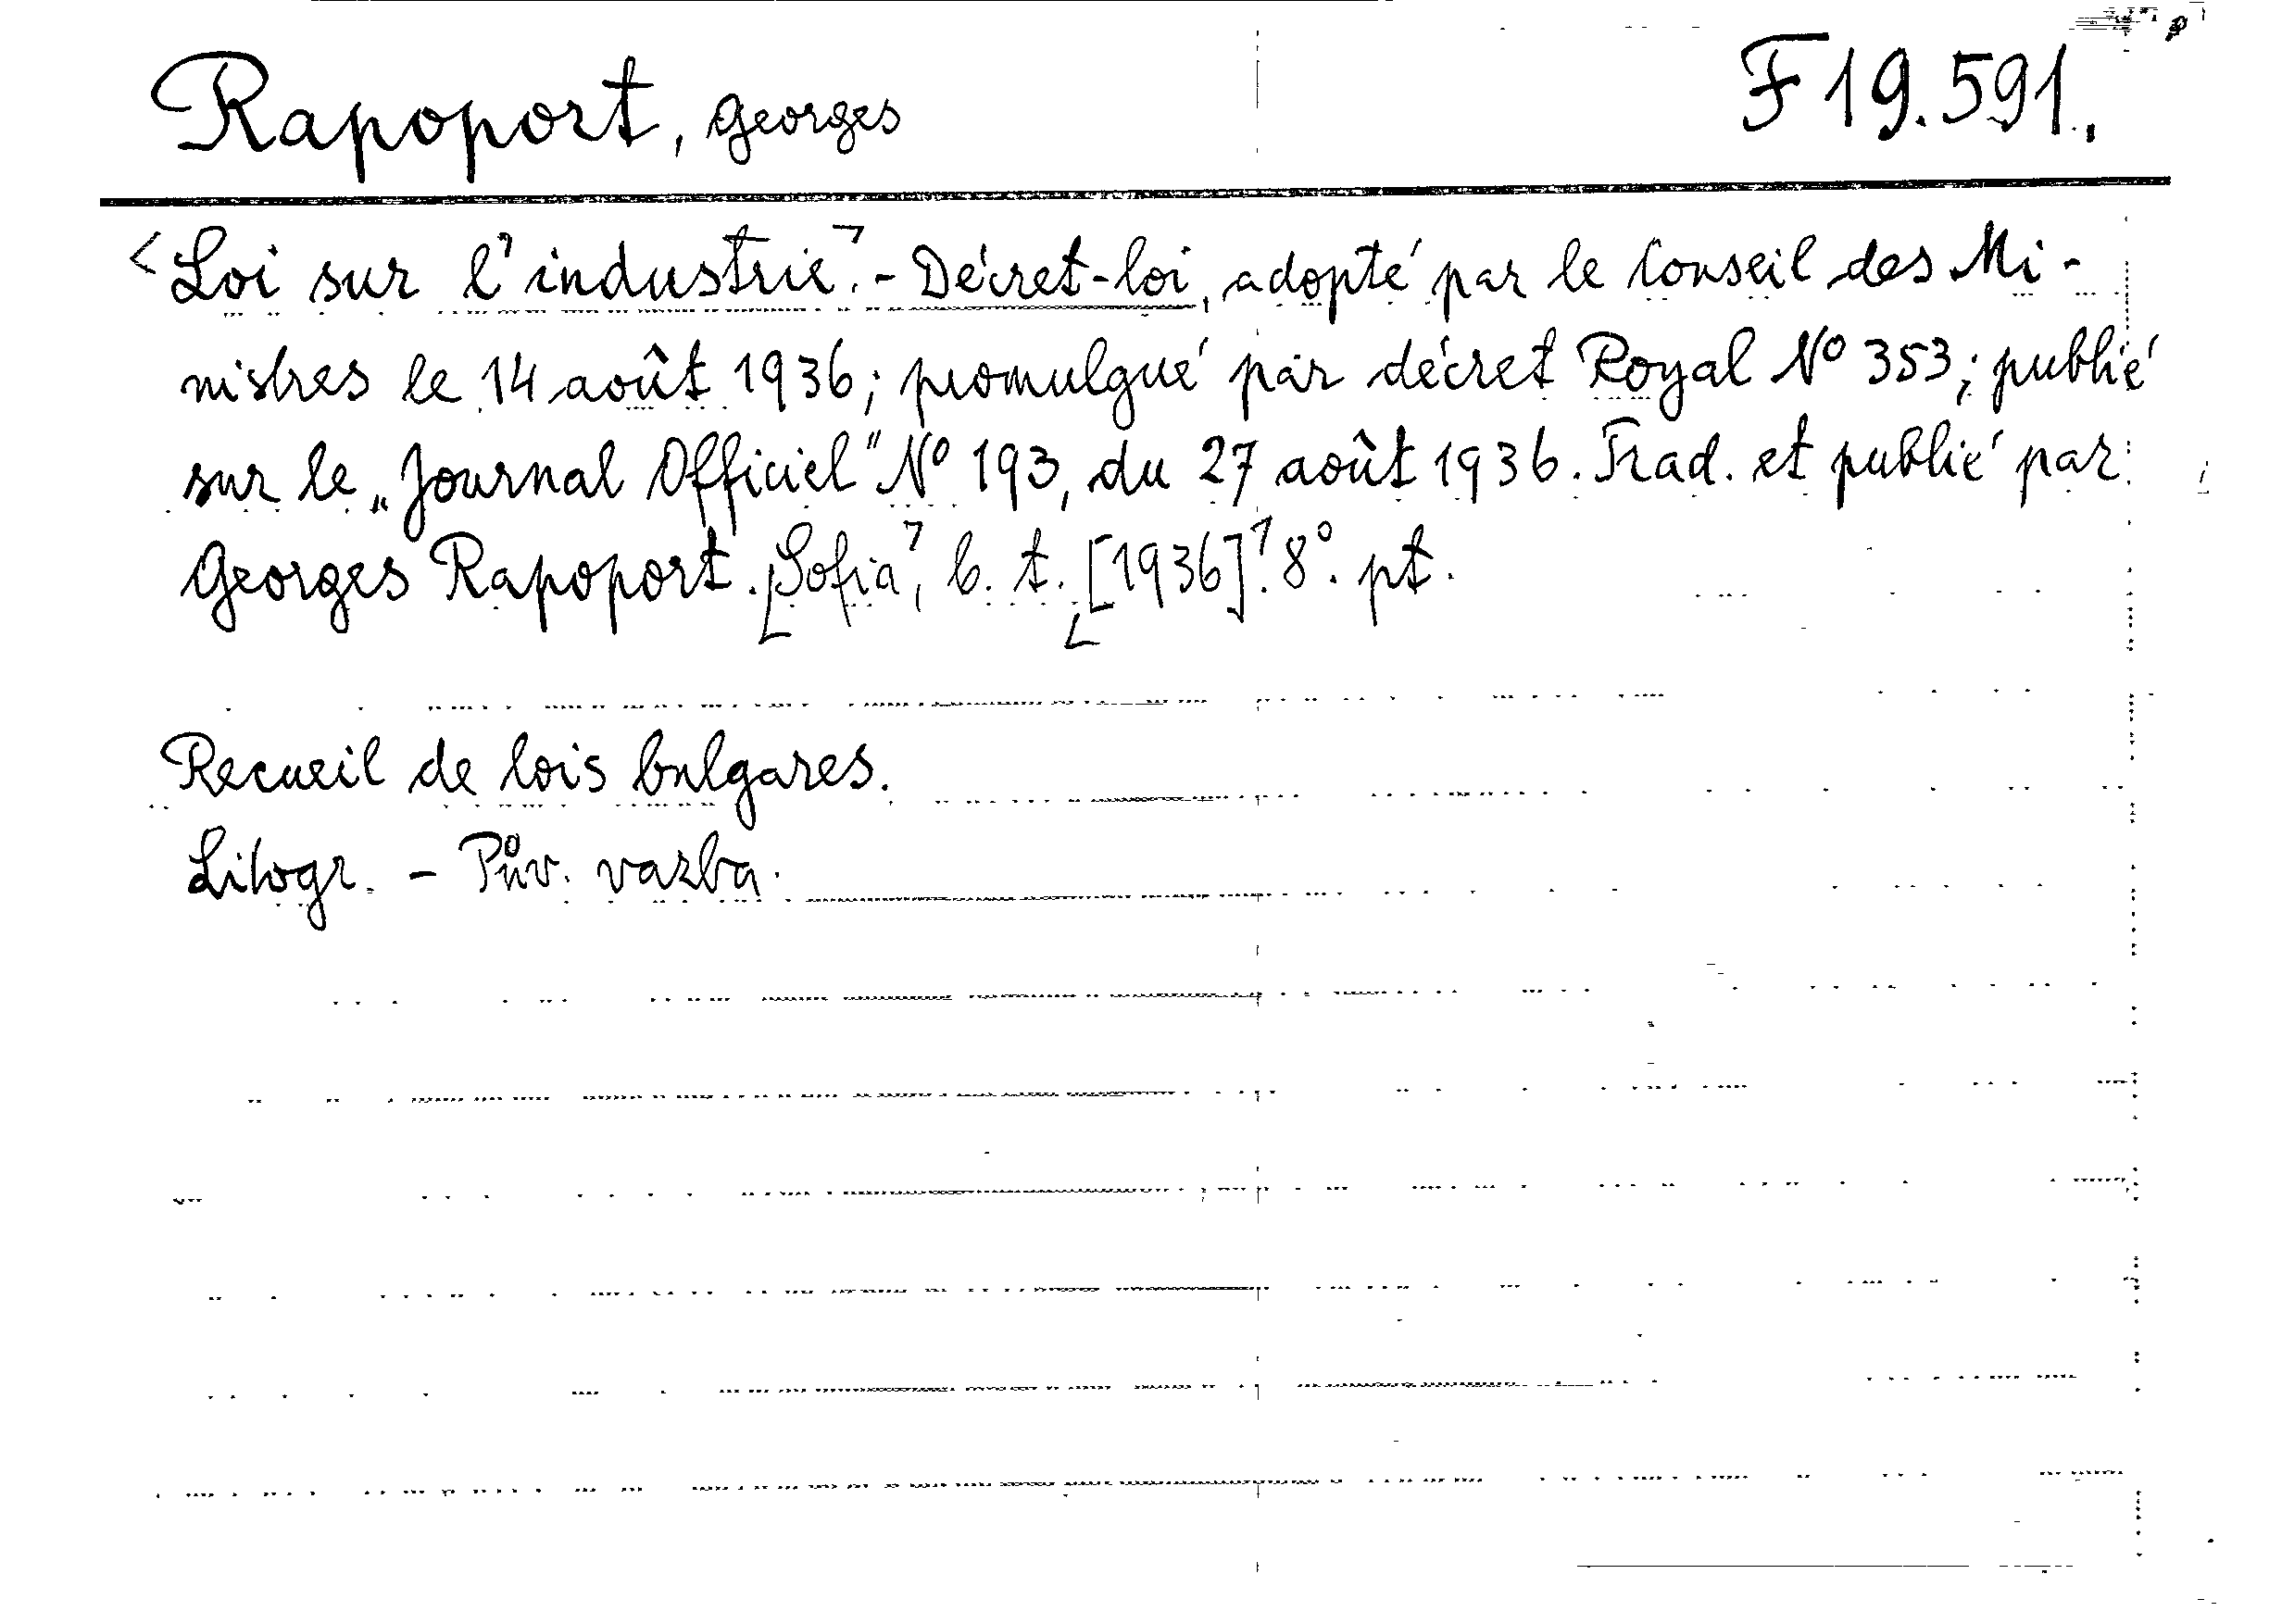 Rapoport, Georges
F 19.591.
<Loi sur l'industrie>.- Décret-loi, adopté par le Conseil des Mi-
nistres le 14 août 1936; promulgué par décret Royal No 353; publié
sur le „Journal Officiel" No 193, du 27 août 1936. Trad. et publié par
Georges Rapoport. Sofia, b. t. [1936]. 8°. pt.
Recueil de lois bulgares.
Litogr. - Pův. vazba.